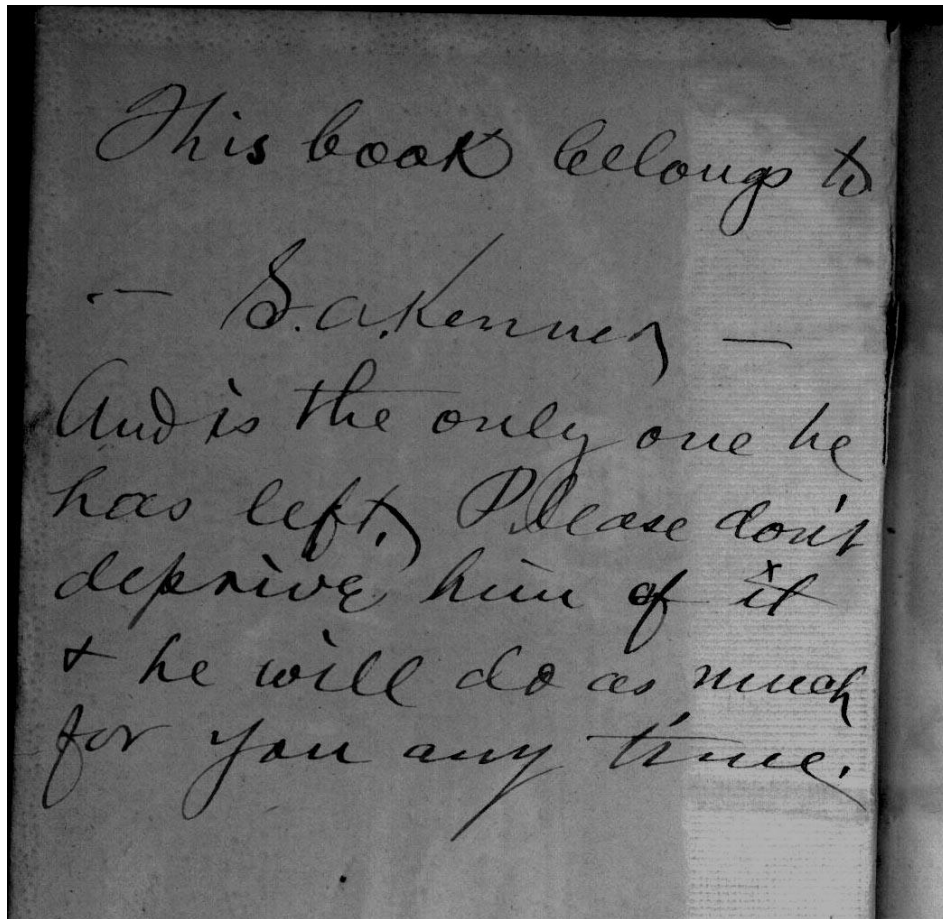 This book belongs to
— S. A. Kenner —
And is the only one he
has left, Please don't
deprive him of it
& he will do as much
for you any time.